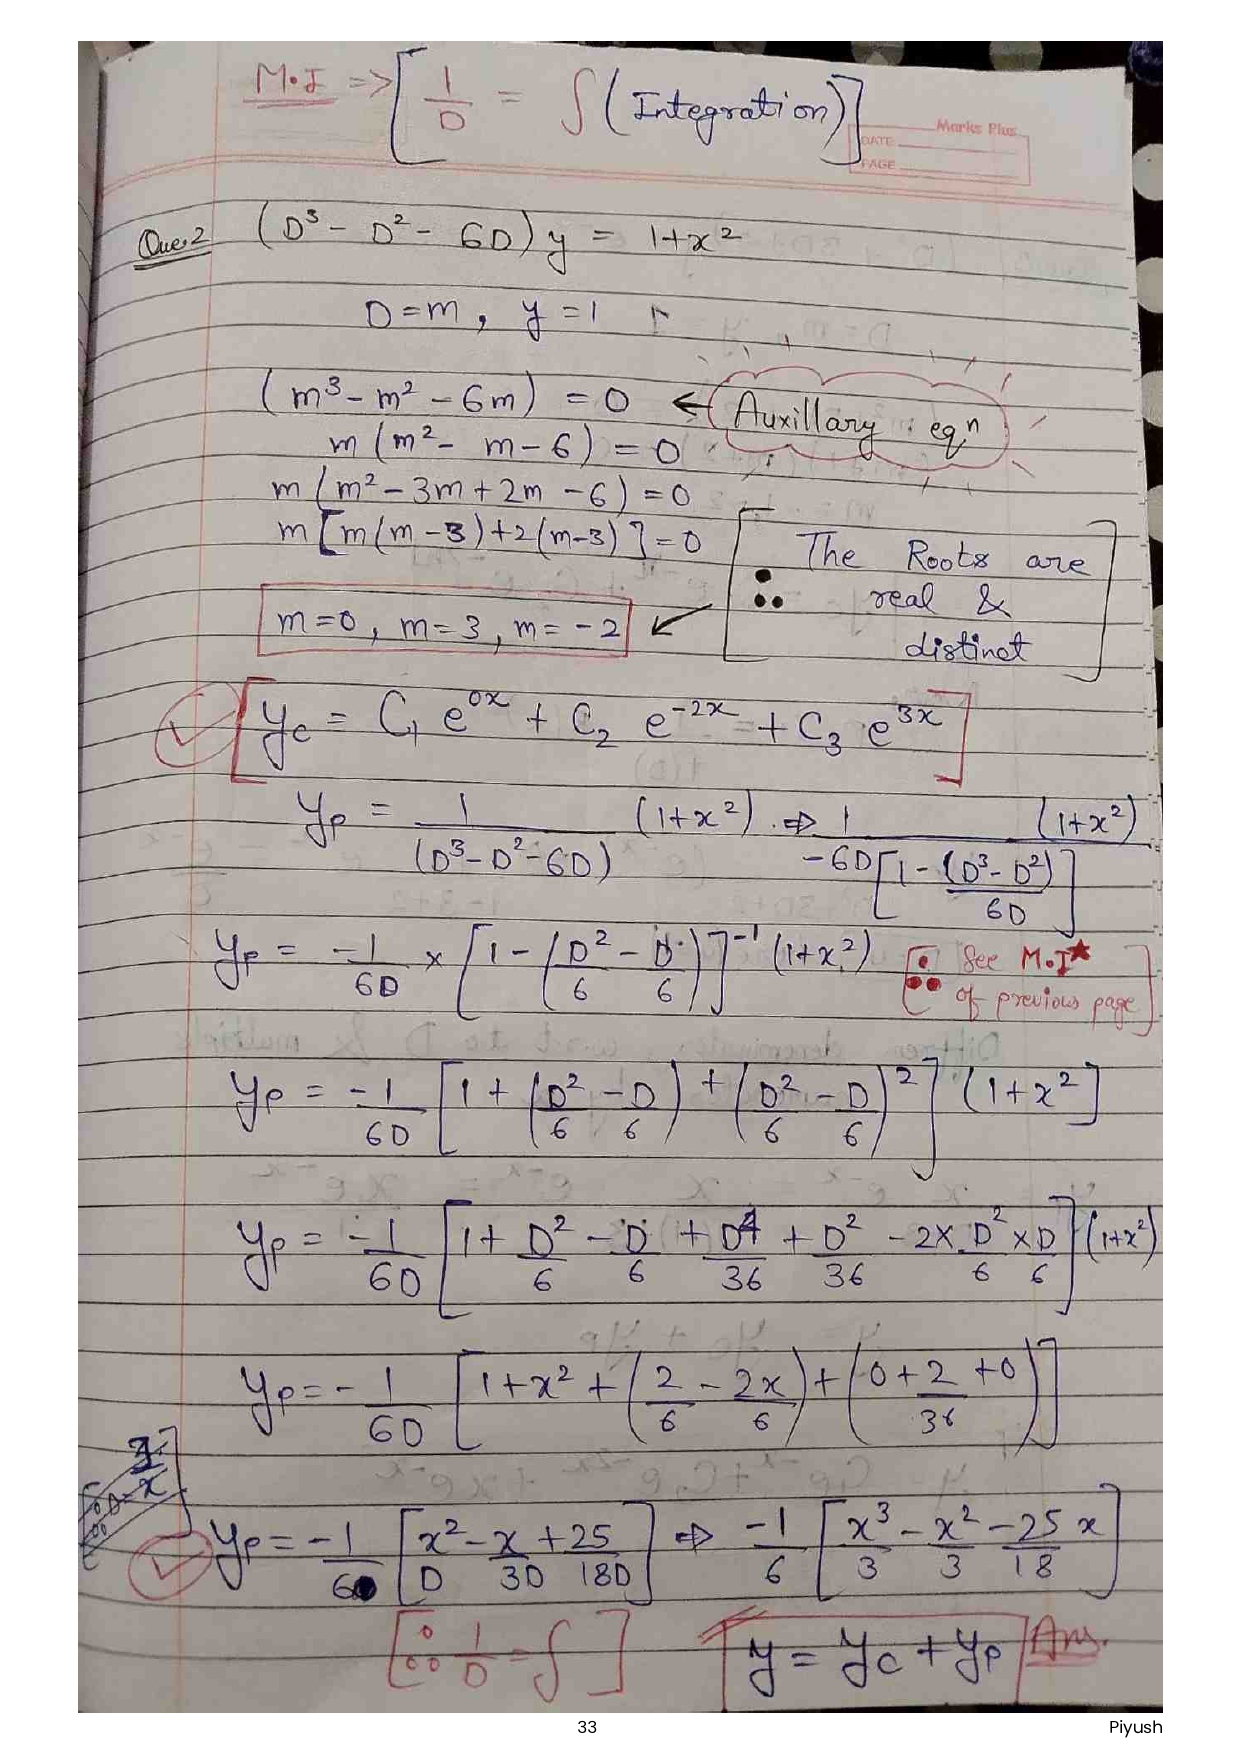 M.I => [ 1/D = ∫ (Integration) ]
Marks Plus
DATE
PAGE
Que.2 (D³ - D² - 6D) y = 1+x²
D = m, y = 1
(m³ - m² - 6m) = 0 ← Auxillary eqⁿ
m (m² - m - 6) = 0
m (m² - 3m + 2m - 6) = 0
m [m(m - 3) + 2(m-3)] = 0
[∴ The Roots are
real &
distinct]
m = 0, m = 3, m = -2
[yc = C₁ e^0x + C₂ e^-2x + C₃ e^3x]
yp = 1/(D³-D²-6D) (1+x²) ⇒ 1/-6D[1 - (D³-D²)/6D] (1+x²)
yp = -1/6D × [1 - (D²/6 - D/6)]^-1 (1+x²) [∴ See M.I★
of previous page]
yp = -1/6D [1 + (D²/6 - D/6) + (D²/6 - D/6)²] (1+x²]
yp = -1/6D [1 + D²/6 - D/6 + D⁴/36 + D²/36 - 2× D²/6 × D/6] (1+x²)
yp = - 1/6D [1+x² + (2/6 - 2x/6) + (0 + 2/36 + 0)]
yp = -1/6 [x²/D - x/3D + 25/18D] ⇒ -1/6 [x³/3 - x²/3 - 25/18 x]
[∴ 1/D = ∫ ]
y = yc + yp Ans.
33
Piyush